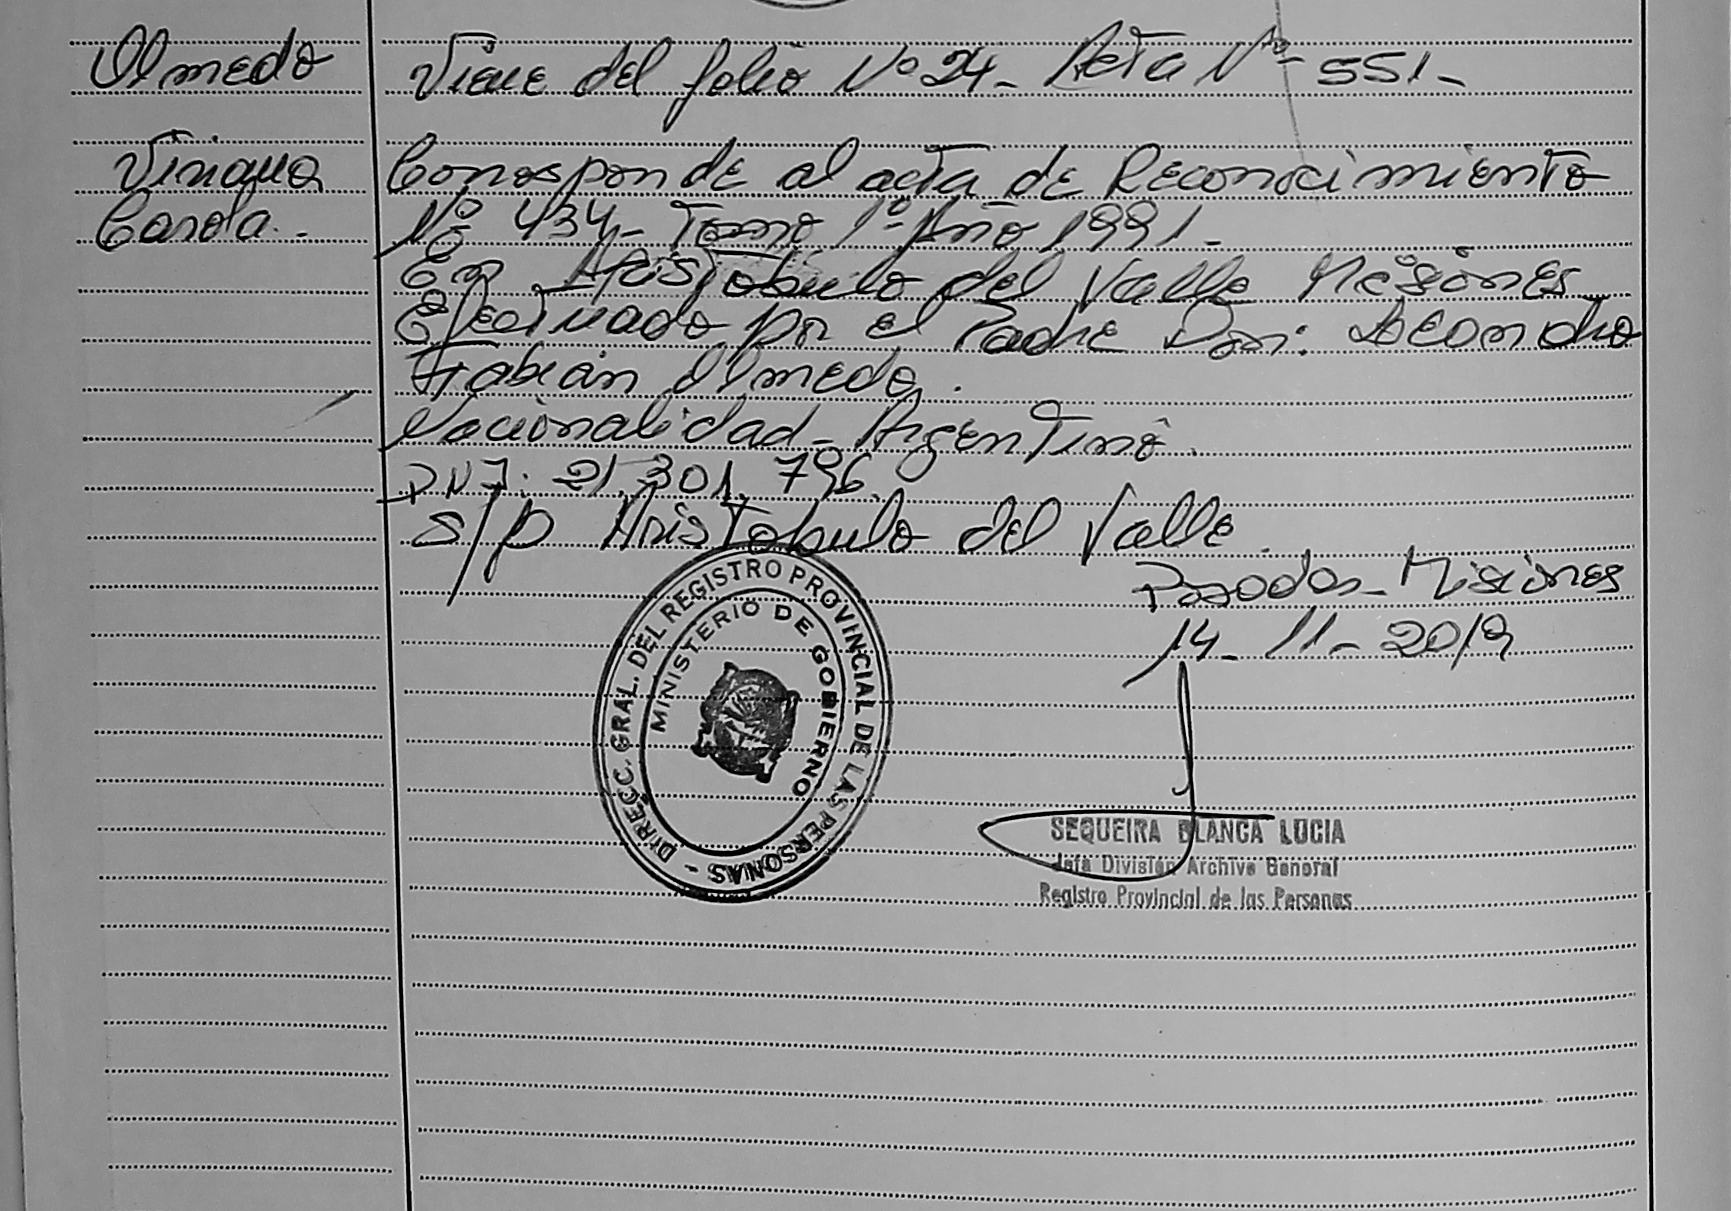 Olmedo
Viene del folio Nº 24 - Acta Nº 551 -
Carola. -
Corresponde al acta de Reconocimiento
Nº 434 - Tomo 1º Año 1991 -
En Aristobulo del Valle Misiones
Efectuado por el Padre Don: Leandro
Fabian Olmedo.
Nacionalidad - Argentino.
DNI: 21.301.796.
S/D Aristobulo del Valle.
Posadas - Misiones
14 - 11 - 2019
DIRECC. GRAL. DEL REGISTRO PROVINCIAL DE LAS PERSONAS -
MINISTERIO DE GOBIERNO
SEQUEIRA BLANCA LUCIA
Jefa División Archivo General
Registro Provincial de las Personas